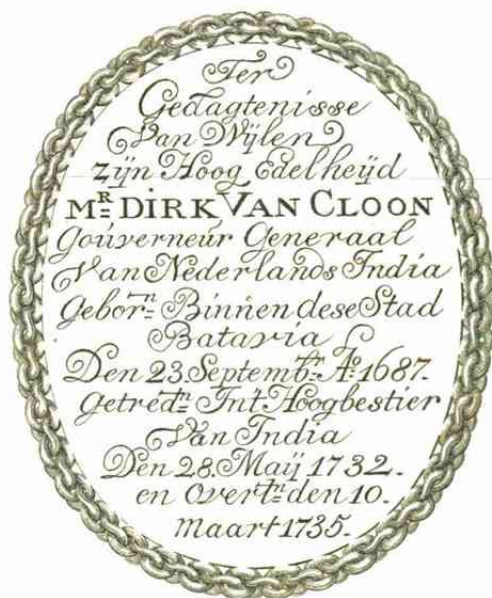 Ter
Gedagtenisse
Van Wijlen
zijn Hoog Edelheijd
MR= DIRK VAN CLOON
Goúverneúr Generaal
Van Nederlands India
Gebor=n Binnen dese Stad
Batavia
Den 23. Septemb=r Ao: 1687.
Getred=n Int Hoogbestier
Van India
Den 28. Maij 1732.
en Overt=n den 10.
Maart 1735.